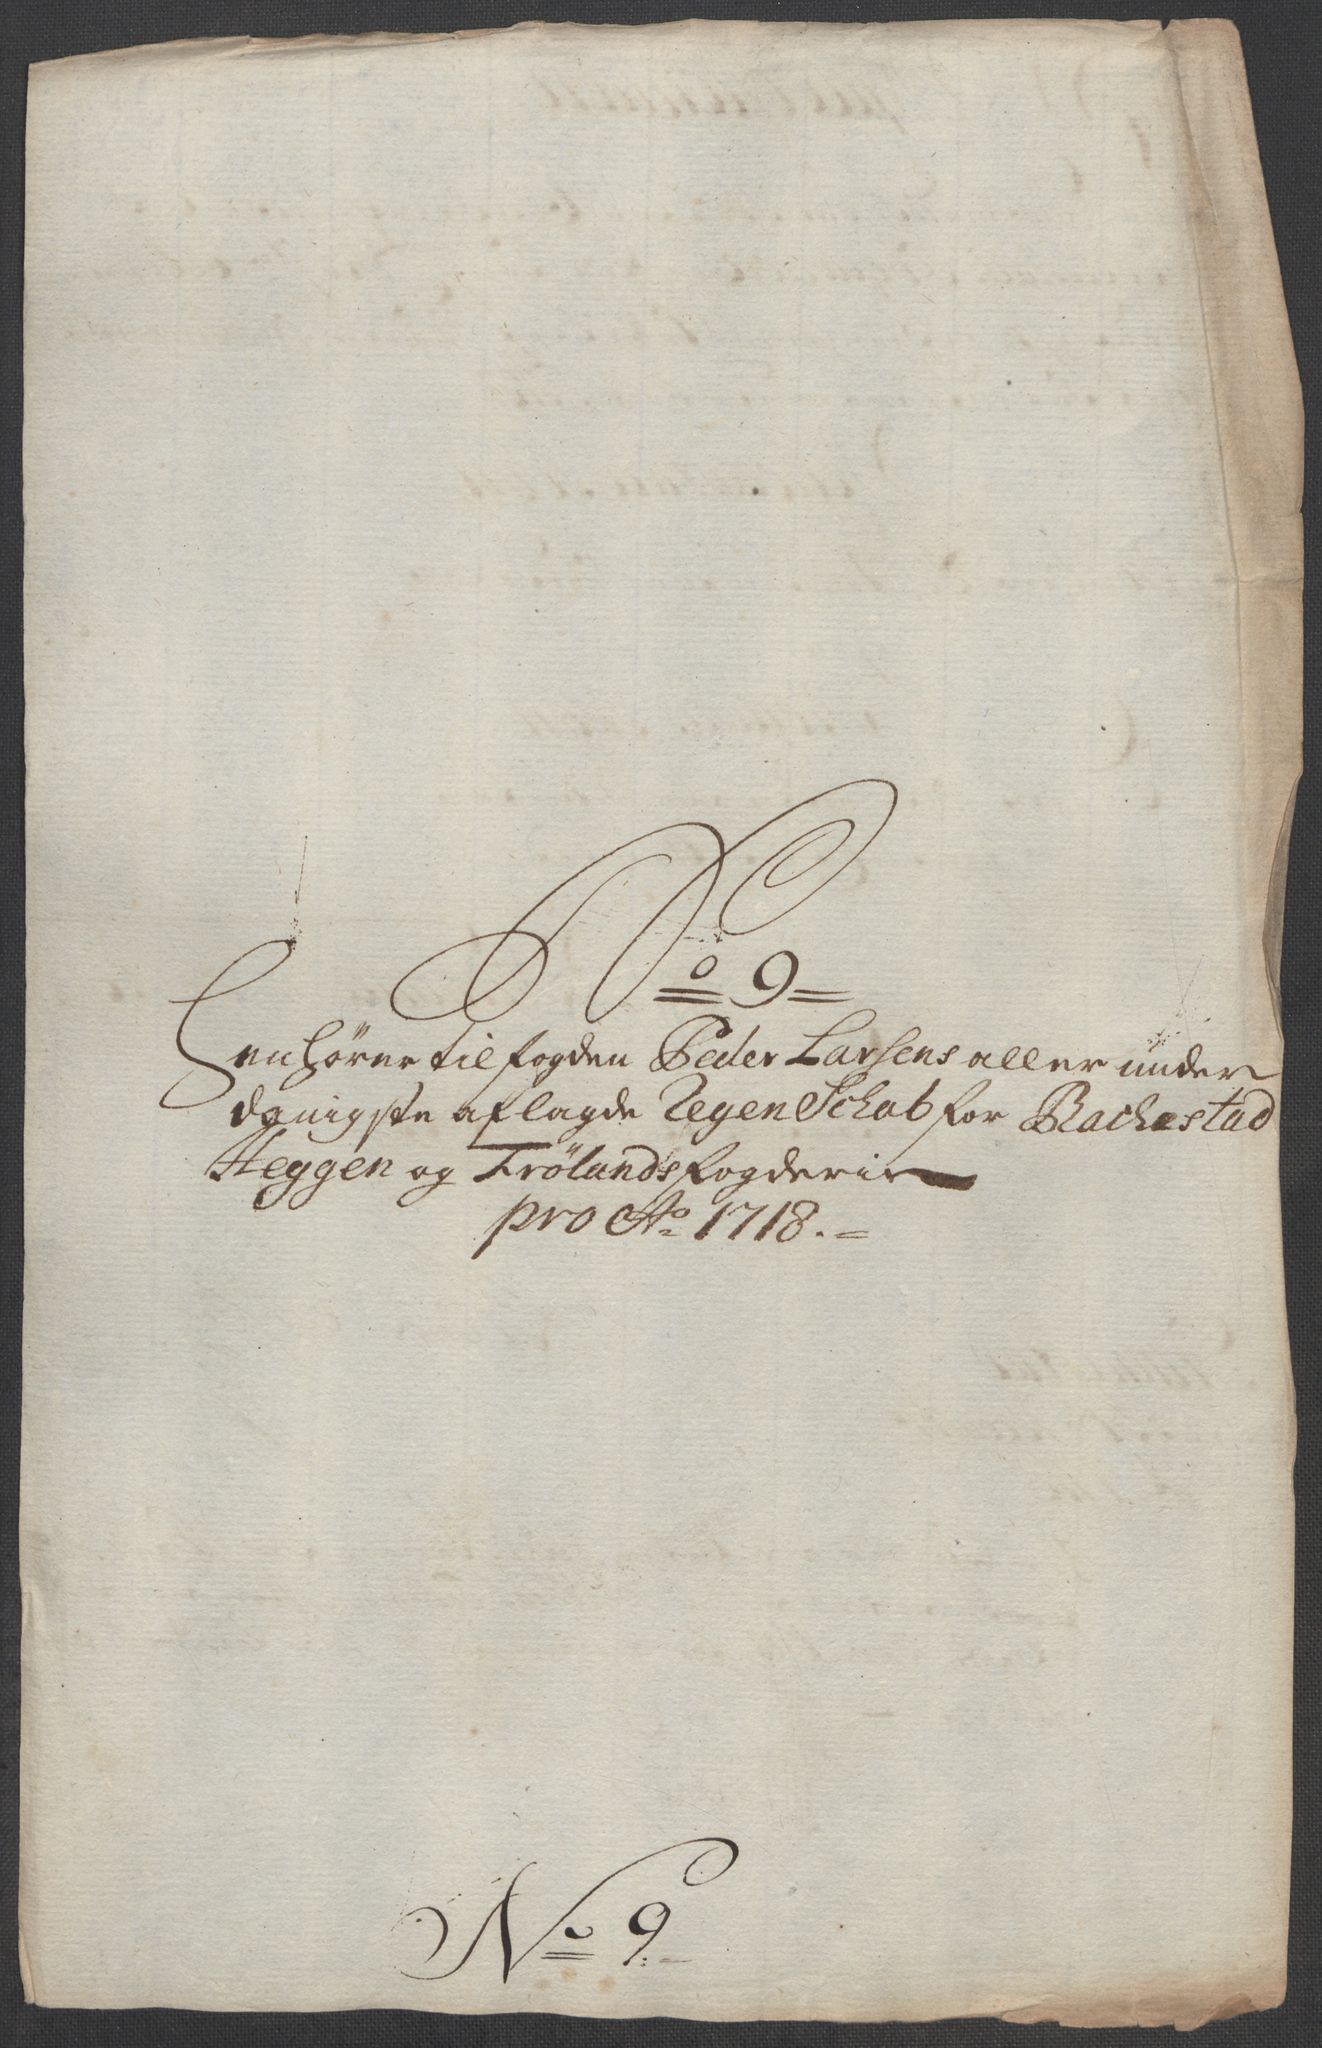 No 9
Henhører til fogden Peder Larsens aller under
danigste aflagde RegenSchab for Rachestad
Heggen og Frølands fogderie
pro Ao 1718.
No 9